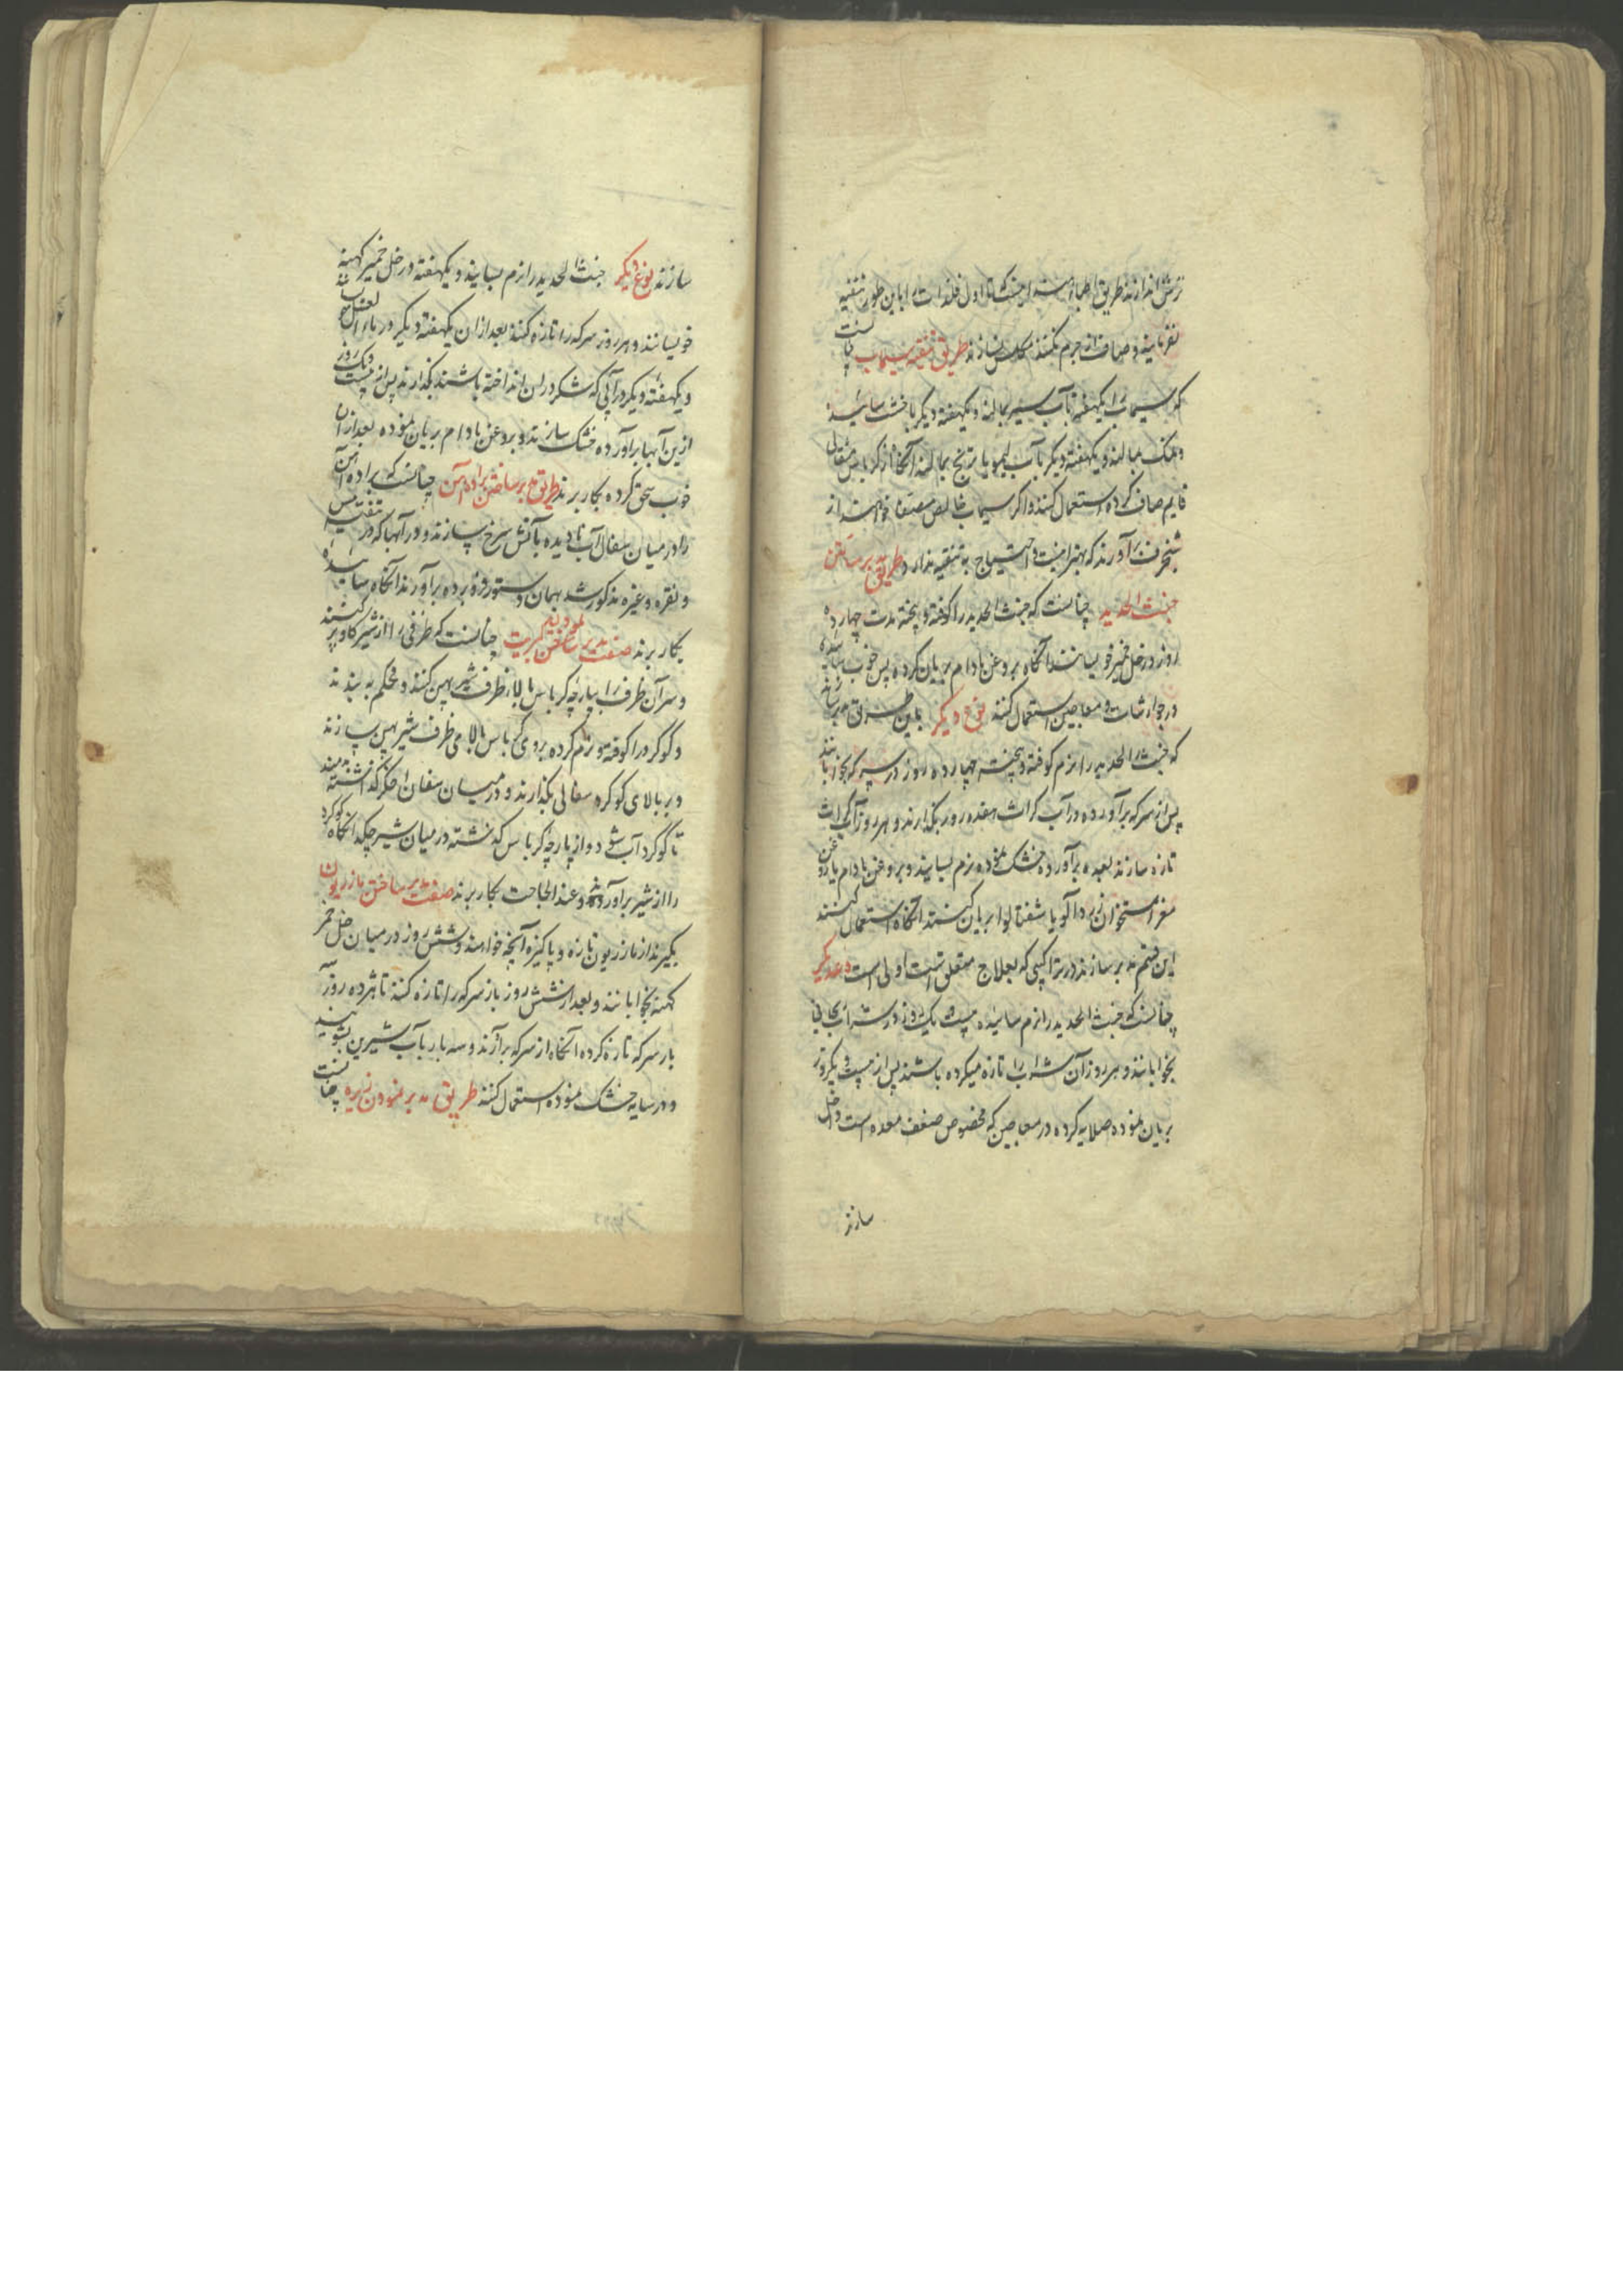 ترش اندازند طریق اطبا
نفرمایند و صاف از جرم نکنند مکلس نسازند طریق تنقیه سیماب چنانست
که سیماب را یکهفته بآب سیر بمالند و یکهفته دیگر با خشت سائیده
و نمک بمالند و یکهفته دیگر بآب لیمو یا ترنج بمالند آنگاه از کرباس
قایم صاف کرده استعمال کنند و اگر سیماب خالص مصفا خواهند از
شنجرف برآورند که بهتر است و احتیاج به تنقیه ندارد طریق مدبر ساختن
خبث الحدید چنانست که خبث الحدید را کوفته و پخته مدت چهارده
روز در خل خمر خویسانند آنگاه بروغن بادام بریان کرده پس خوب سائیده
در جوارشات و معاجین استعمال کنند نوع دیگر باین طریق مدبر سازند
که خبث الحدید را نرم کوفته و پخته چهارده روز در سرکه بخوابانند
پس از سرکه برآورده در آب کراث هفده روز بگذارند و هر روز آب کراث
تازه سازند بعده برآورده خشک نموده نرم بسایند و بروغن بادام یا روغن
مغز استخوان زردآلو یا شفتالو بریان کنند آنگاه استعمال کنند
این قسم مدبر سازند در تراکیبی که بعلاج متعلق است اولی است
چنانست که خبث الحدید را نرم سائیده بیست یک روز در شراب
بخوابانند و هر روز آن شراب را تازه میکرده باشند پس از بیست و یکروز
بریان نموده صلایه کرده در معاجین که مخصوص ضعف معده است داخل
سازند
سازند نوع دیگر خبث الحدید را نرم بسایند و یکهفته در خل خمر کهنه
خویسانند و هر روز سرکه را تازه کنند بعد از ان یکهفته دیگر در ماء العسل
و یکهفته دیگر در آبی که شکر در ان انداخته باشند بگذارند پس از بیست و یک روز
ازین آبها برآورده خشک سازند و بروغن بادام بریان نموده بعد از ان
خوب سحق کرده بکار برند طریق مدبر ساختن براده آهن چنانست که براده آهن
را در میان سفال آب نادیده بآتش سرخ سازند و در آبها که در تنقیه مس
و نقره و غیره مذکور شد بهمان دستور فرو برده برآورند آنگاه سائیده
بکار برند صفت مدبر ساختن کبریت چنانست که ظرفی را از شیر گاو پر کنند
و سر آن ظرف را بپارچه کرباس بالای ظرف شیر پهن کنند و محکم به بندند
و گوگرد را کوفته و نرم کرده بروی کرباس بالای ظرف شیر پهن سازند
و بر بالای گوگرد سفالی بگذارند و در میان سفال اخگر گذاشته بدمند
تا گوگرد آب شود و از پارچه کرباس گذشته در میان شیر چکد آنگاه گوگرد
را از شیر برآورده و عند الحاجت بکار برند صفت مدبر ساختن مازریون
بگیرند از مازریون تازه و پاکیزه آنچه خواهند و شش روز در میان خل خمر
کهنه بخوابانند و بعد از شش روز باز سرکه را تازه کنند تا هژده روز سه
بار سرکه تازه کرده آنگاه از سرکه برآرند و سه بار بآب شیرین بشویند
و در سایه خشک نموده استعمال کنند طریق مدبر نمودن زیره چنانست